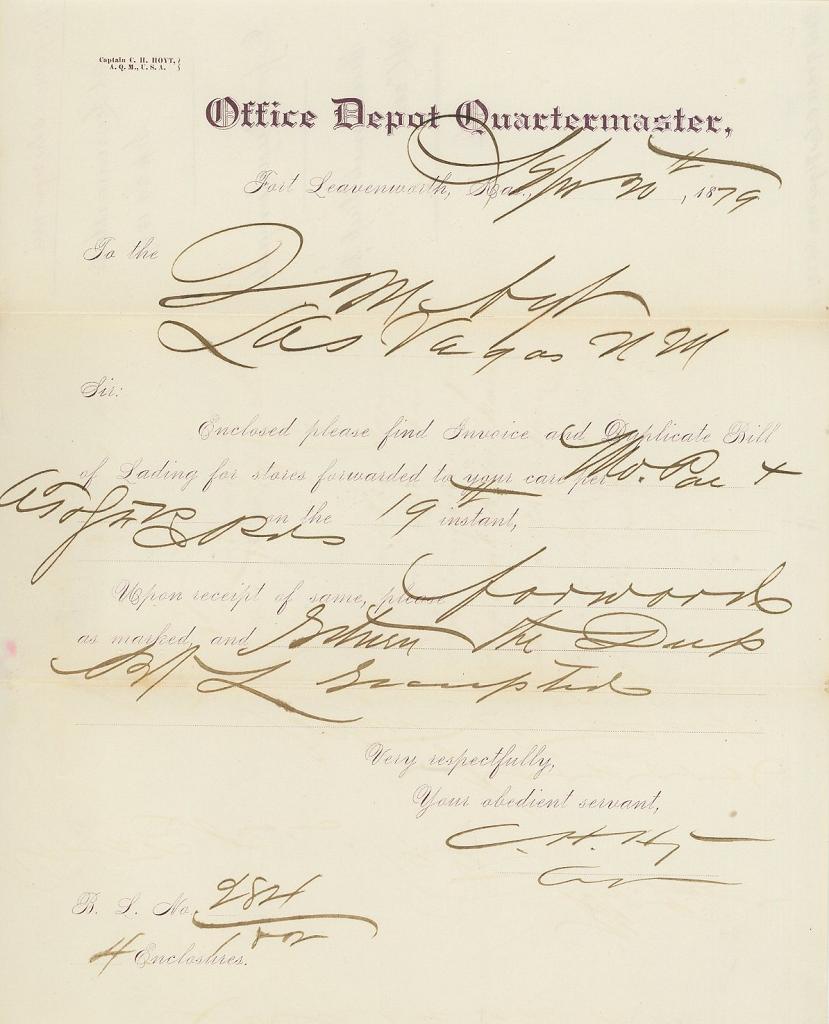 Captain C. H. HOYT,
A. Q. M., U. S. A.
Office Depot Quartermaster,
Fort Leavenworth, Kas., 20th, 1879
To the
Q M Agt
Las Vegas N M
Sir:
Enclosed please find Invoice and Duplicate Bill
of Lading for stores forwarded to your care per Mo. Pac &
on the 19th instant,
Upon receipt of same, please forward
as marked, and return the Dup
B/L receipted
Very respectfully,
Your obedient servant,
C. H. Hoyt
B. L. No. 284
4 Enclosures.